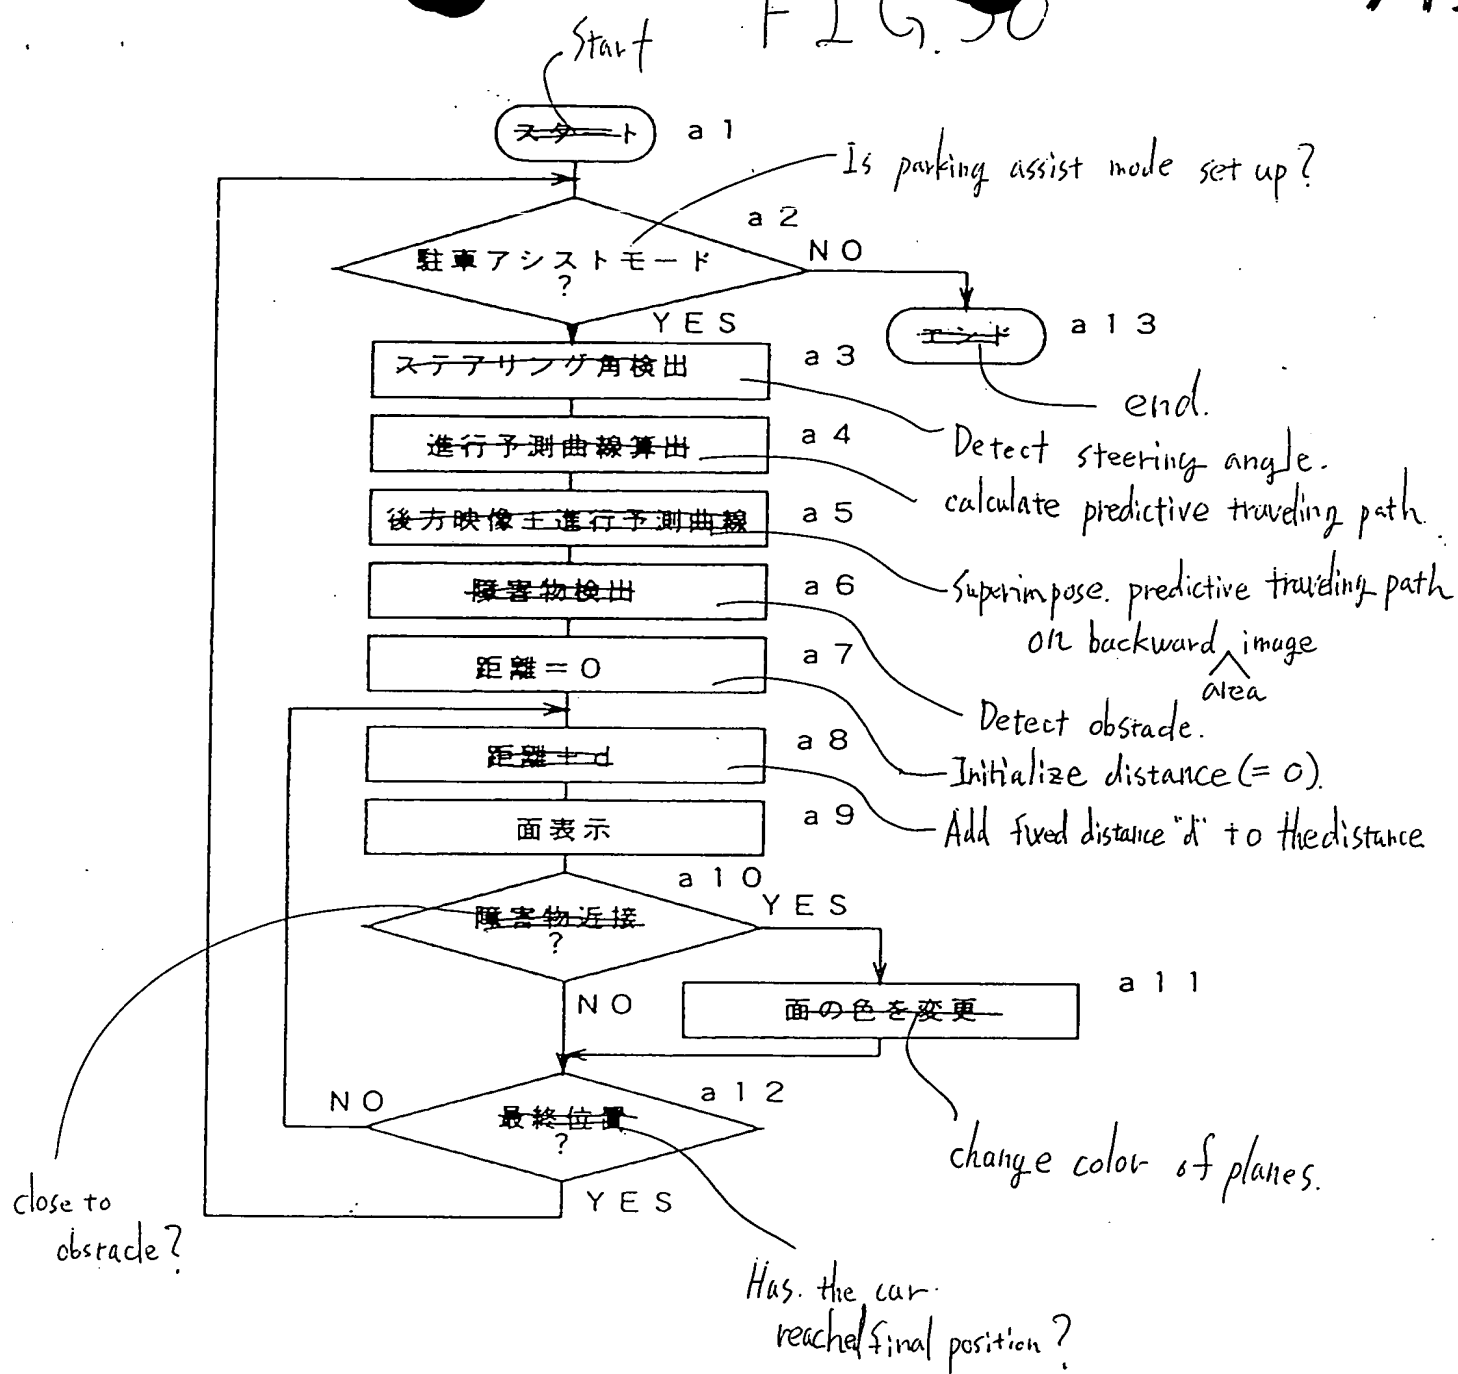 FIG. 30
Start
スタート a1
Is parking assist mode set up?
a2
駐車アシストモード
?
NO
YES
エンド a13
end.
ステアリング角検出 a3
Detect steering angle.
進行予測曲線算出 a4
calculate predictive traveling path.
後方映像上進行予測曲線 a5
Superimpose. predictive traveling path
on backward image
area
障害物検出 a6
Detect obstacle.
距離=0 a7
Initialize distance (= 0).
距離+d a8
Add fixed distance "d" to the distance
面表示 a9
a10
障害物近接
?
YES
NO
close to
obstacle?
面の色を変更 a11
change color of planes.
a12
最終位置
?
NO
YES
Has. the car
reached final position?